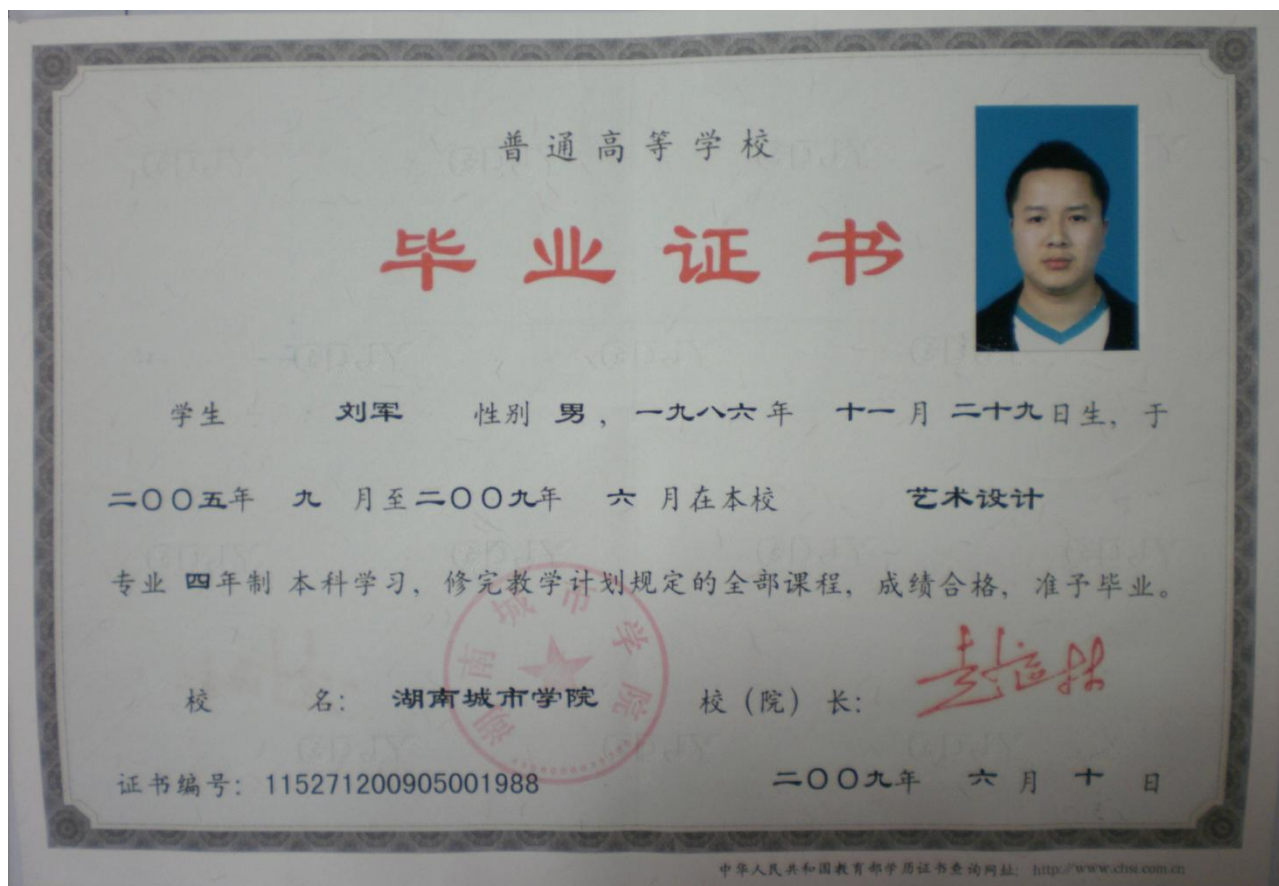 普通高等学校
毕业证书
学生 刘军 性别 男，一九八六年 十一月 二十九日生，于
二〇〇五年 九 月至二〇〇九年 六 月在本校 艺术设计
专业 四年制 本科学习，修完教学计划规定的全部课程，成绩合格，准予毕业。
湖南城市学院
校 名： 湖南城市学院 校（院）长：
证书编号：115271200905001988 二〇〇九年 六 月 十 日
中华人民共和国教育部学历证书查询网址：http://www.chsi.com.cn